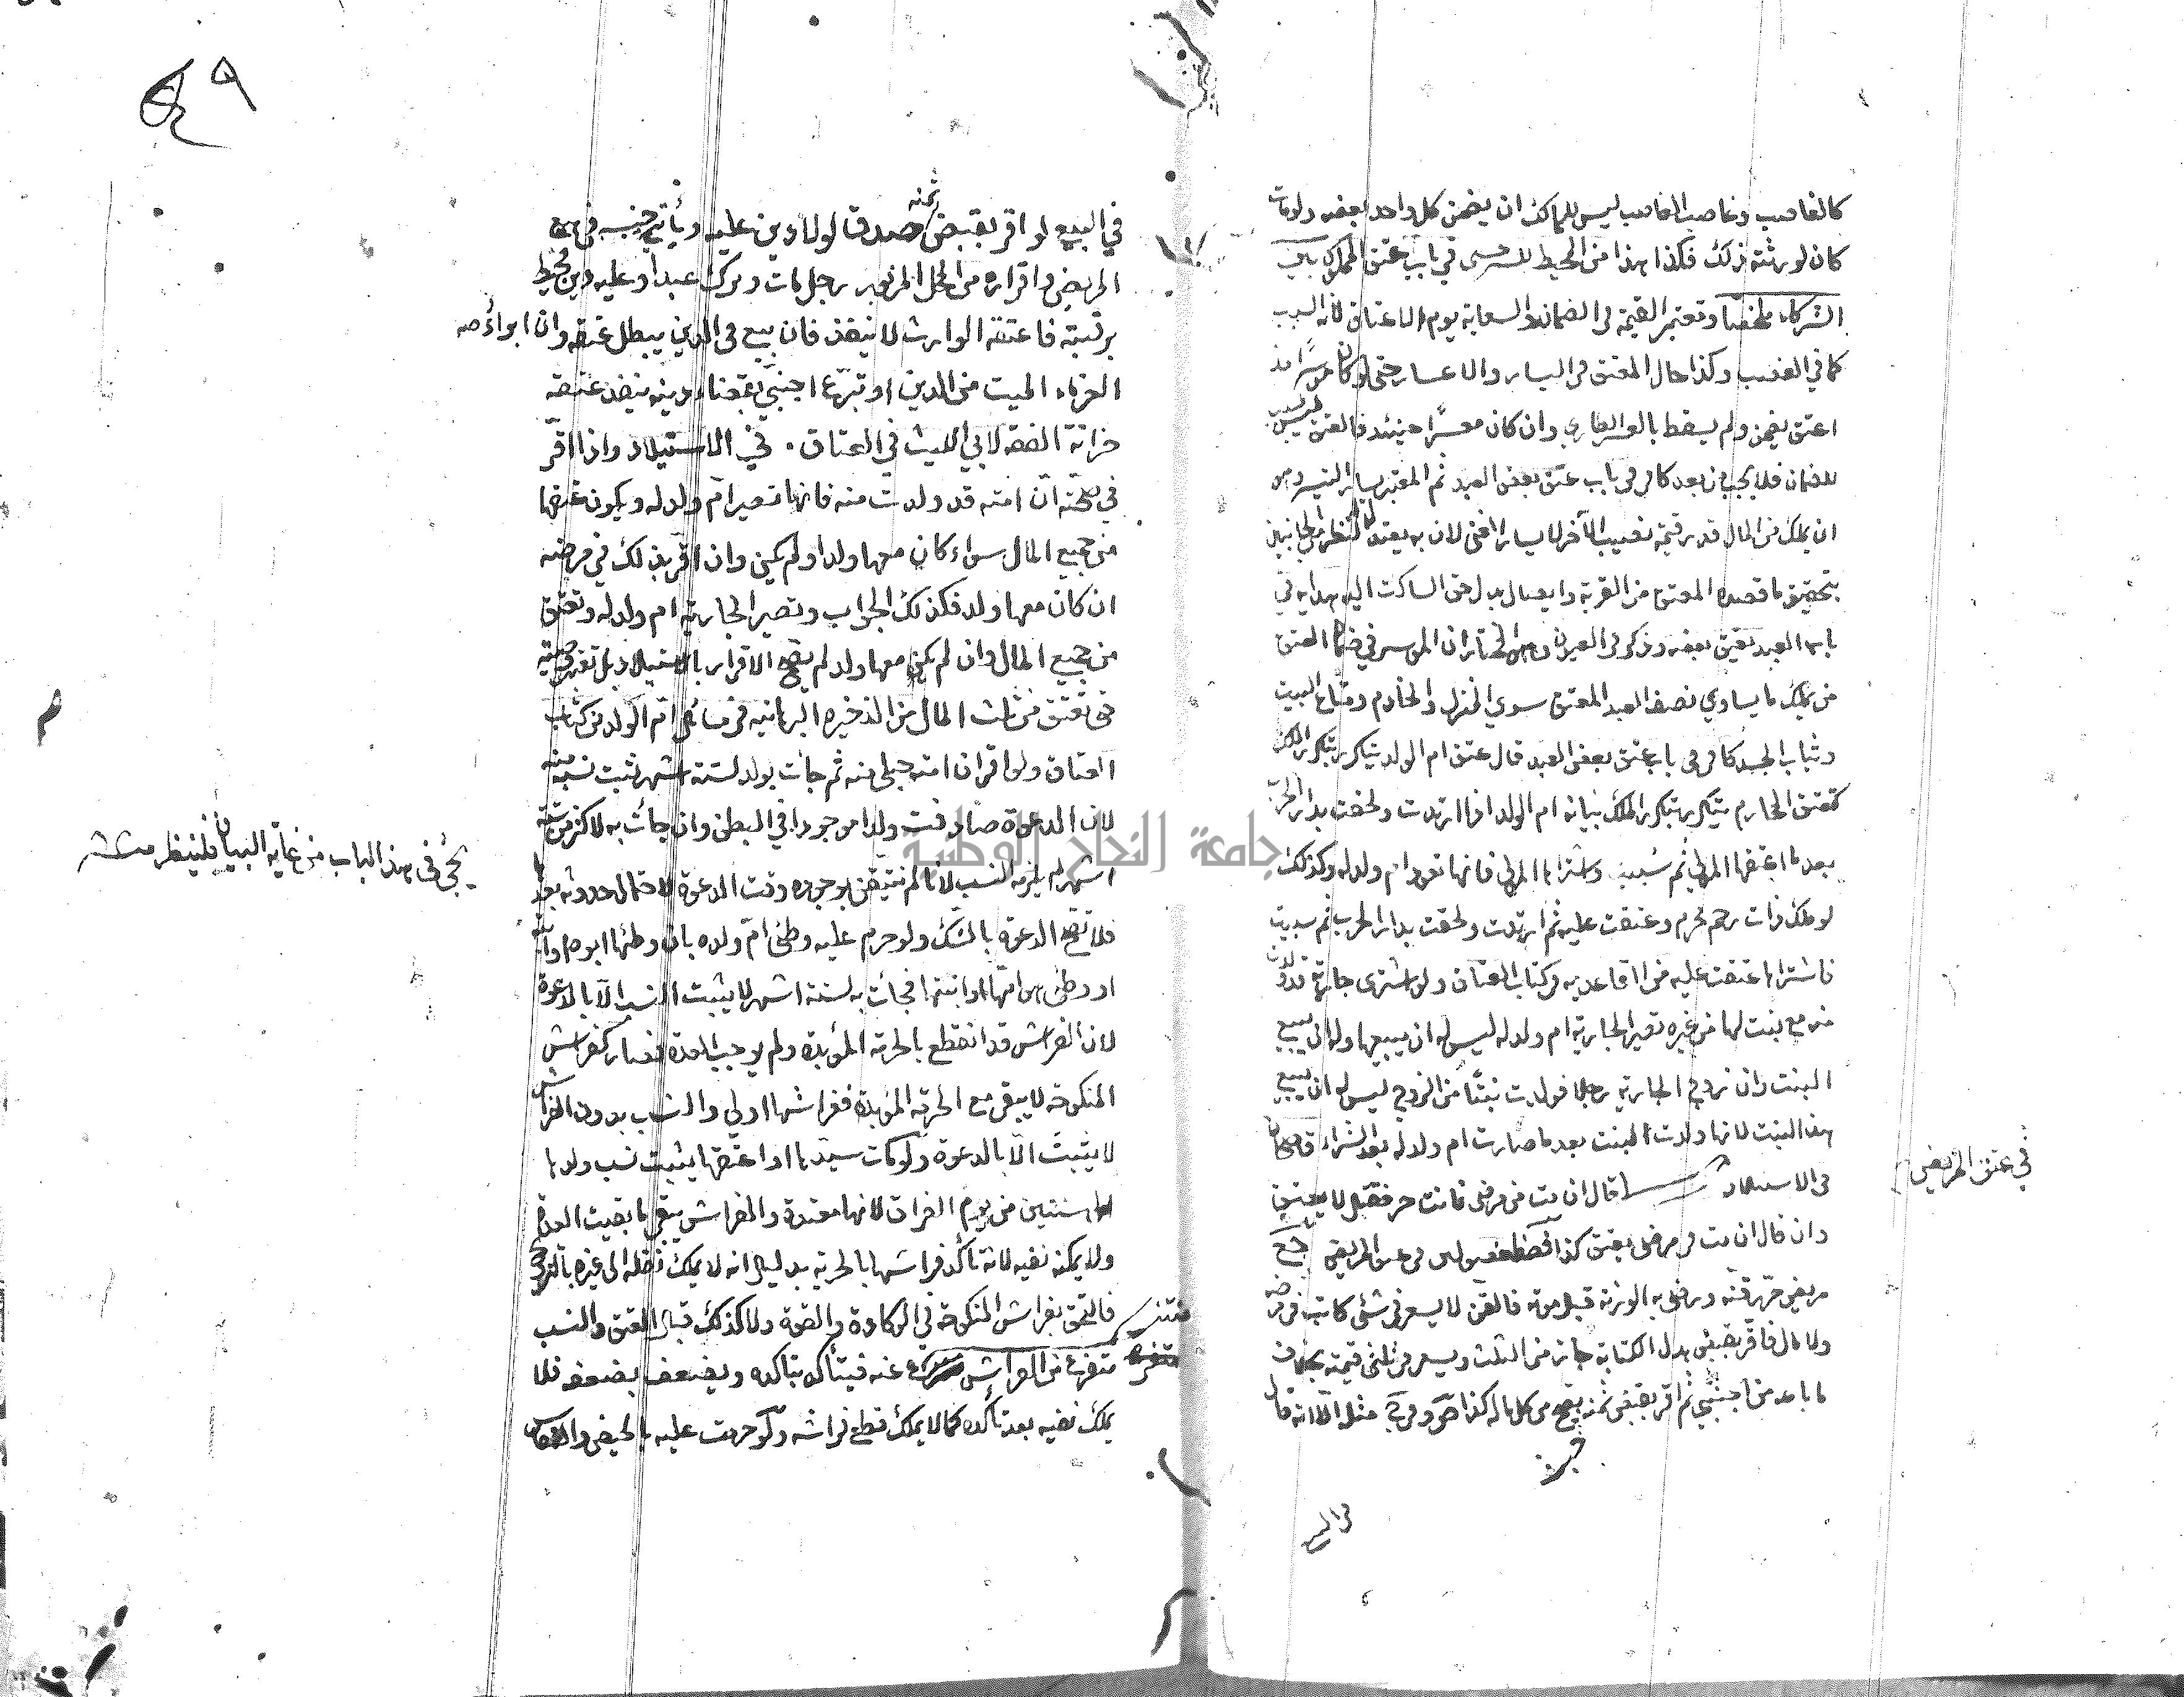 كالغاصب وغاصب الغاصب ليس للمالك ان يضمن كل واحد بعضه ولو مات
كان لورثته ذلك فكذا هذا من المحيط للسرخسي في باب عتق المملوك بين
الشركاء ملخصا وتعتبر القيمة في الضمان والسعاية يوم الاعتاق لانه السبب
كما في الغصب وكذا حال المعتق في اليسار والاعسار حتى لو كان موسرا منذ
اعتق يضمن ولم يسقط بالعسر الطاري وان كان معسرا حينئذ فالعتق ليس
للضمان فلا يجب من بعد كافي في باب عتق بعض العبد ثم المعتبر يسار التيسر وهو
ان يملك من المال قدر قيمة نصيب الآخر لا يسار الغنى لان به يعتدل النظر من الجانبين
بتحقيق ما قصده المعتق من القربة وايصال بدل حق الساكت اليه هداية في
باب العبد يعتق بعضه وذكر في العيون ان المختار ان الموسر في ضمان العتق
من يملك ما يساوي نصف العبد المعتق سوى المنزل والخادم ومتاع البيت
وثياب الجسد كافي في باب عتق بعض العبد قال عتق ام الولد يتكرر بتكرر الملك
كعتق المحارم يتكرر بتكرر الملك بيانه ام الولد اذا ارتدت ولحقت بدار الحرب
بعد ما اعتقها المولى ثم سبيت واشتراها المولى فانها تعود ام ولد له وكذلك
لو ملك ذات رحم محرم وعتقت عليه ثم ارتدت ولحقت بدار الحرب ثم سبيت
فاشتراها عتقت عليه من القاعدية في كتاب العتاق ولو اشترى جارية قد ولدت
منه مع بنت لها من غيره تصير الجارية ام ولد له ليس له ان يبيعها وله ان يبيع
البنت وان زوج الجارية رجلا فولدت بنتا من الزوج ليس له ان يبيع
هذا البنت لانها ولدت البنت بعد ما صارت ام ولد له بعد الشراء قاضيخان
في الاستيلاد قال ان مت من مرضي فانت حر فقتل لا يعتق
وان قال ان مت في مرضي يعتق كذا في عتق المريض
مريض حرر قنه ورضي به الورثة قبل موته فالقن لا يسعى في شئ كاتبه في مرضه
ولا مال فاقر بقبض بدل الكتابة جاز من الثلث ويسعى في ثلثي قيمته بخلاف
ما باعه من اجنبي ثم اقر بقبض ثمنه يصح من كل ماله كذا مثله الا انه قال
في البيع
في عتق المريض
في البيع لو اقر بقبض ثمنه صدق لو لا دين عليه ويأتي في بيع
المريض واقراره من المحل المزبور رجل مات وترك عبدا وعليه دين محيط
برقبته فاعتقه الوارث لا ينفذ فان بيع في الدين يبطل عتقه وان ابرأ
الغرماء الميت من الدين او تبرع اجنبي بقضاء دينه ينفذ عتقه
خزانة الفقه لابي الليث في العتاق . في الاستيلاد واذا اقر
في صحته ان امته قد ولدت منه فانها تصير ام ولد له ويكون عتقها
من جميع المال سواء كان معها ولد او لم يكن وان اقر بذلك في مرضه
ان كان معها ولد فكذلك الجواب وتصير الجارية ام ولد له وتعتق
من جميع المال وان لم يكن معها ولد لم يصح الاقرار بالاستيلاد بل
حتى تعتق من ثلث المال من الذخيرة البرهانية في مسائل ام الولد من كتاب
العتاق ولو اقر ان امته حبلى منه ثم جات بولد لستة اشهر يثبت نسبه منه
لان الدعوة صادفت ولدا موجودا في البطن وان جاءت به لاكثر من ستة
اشهر لم يلزمه النسب لانا لم نتيقن بوجوده وقت الدعوة لاحتمال حدوثه بعد
فلا تصح الدعوة بالشك ولو حرم عليه وطئ ام ولده بان وطئها ابوه او ابنه
او وطئ هو امها او ابنتها فجاءت به لستة اشهر لا يثبت النسب الا بالدعوة
لان الفراش قد انقطع بالحرمة المؤبدة ولم يوجب العدة فصار كفراش
المنكوحة لا يبقى مع الحرمة المؤبدة ففراشها اولى والنسب بدون الفراش
لا يثبت الا بالدعوة ولو مات سيدها او اعتقها يثبت نسب ولدها
الى سنتين من يوم الفراق لانها معتدة والفراش يبقى ما بقيت العدة
ولا يمكنه نفيه لانه تأكد فراشها بالحرية بدليل انه لا يملك نقله الى غيره بالتزويج
فالتحق بفراش المنكوحة في الوكادة والقوة ولا كذلك قبل العتق والنسب
متفرع من الفراش عنه فيتأكد بتأكده ويضعف بضعفه فلا
يملك نفيه بعد تأكده كما لا يملك قطع فراشه ولو حرمت عليه بالحيض والنفاس
يجئ في هذا الباب من غاية البيان فلينظر
جامعة النجاح الوطنية